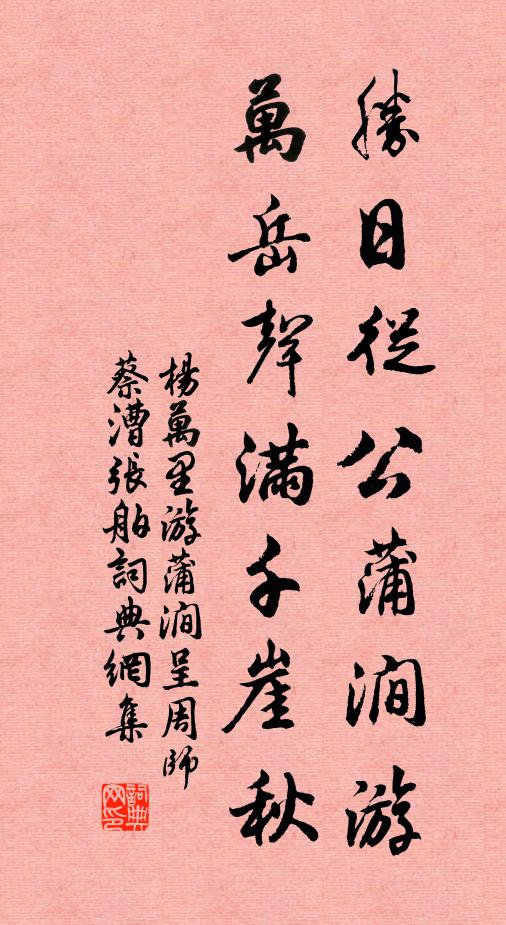 勝日從公蒲澗游
萬岳聲滿千崖秋
楊萬里游蒲澗呈周帥
蔡漕張舶詞典網集
詞典
网印